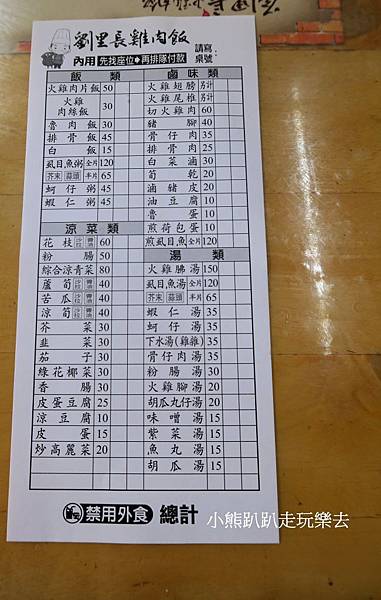 劉里長雞肉飯
內用 先找座位 再排隊付款
請寫桌號:
飯類
火雞肉片飯 50
火雞肉絲飯 30
魯肉飯 30
排骨飯 45
白飯 15
虱目魚粥 全片 120
芥末 蒜頭 半片 65
蚵仔粥 45
蝦仁粥 45
涼菜類
花枝 沙拉 醬油 60
粉腸 50
綜合涼青菜 80
蘆筍 沙拉 醬油 40
苦瓜 沙拉 醬油 40
涼筍 沙拉 醬油 40
芥菜 30
韭菜 30
茄子 30
綠花椰菜 30
香腸 30
皮蛋豆腐 25
涼豆腐 10
皮蛋 15
炒高麗菜 20
滷味類
火雞翅膀 另計
火雞尾椎 另計
切火雞肉 60
豬腳 40
骨仔肉 35
排骨肉 25
白菜滷 30
筍乾 20
滷豬皮 20
油豆腐 10
魯蛋 10
煎荷包蛋 10
煎虱目魚 全片 120
湯類
火雞腸湯 150
虱目魚湯 全片 120
芥末 蒜頭 半片 65
蝦仁湯 35
蚵仔湯 35
下水湯(雞雜) 35
骨仔肉湯 35
粉腸湯 30
火雞腳湯 20
胡瓜丸仔湯 20
味噌湯 15
紫菜湯 15
魚丸湯 15
胡瓜湯 15
禁用外食 總計
小熊趴趴走玩樂去